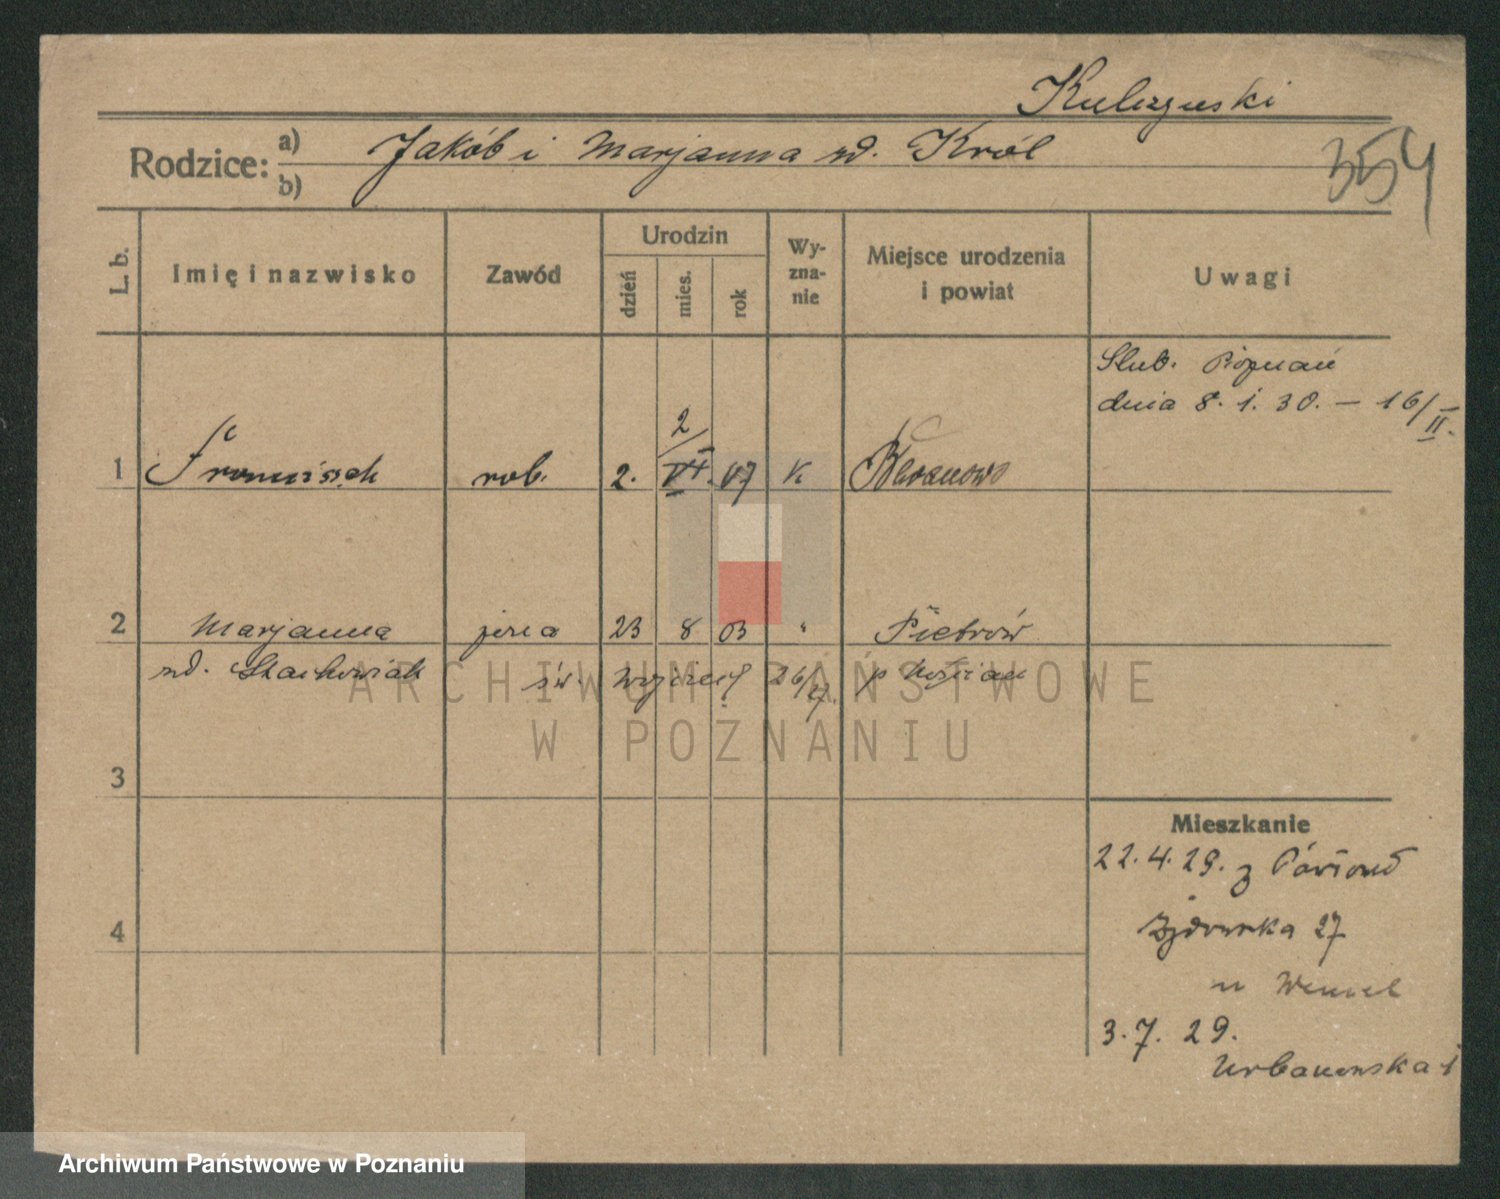 Kulczyński
Rodzice: a) Jakób i Marjanna zd. Król
b)
354
L. b. Imię i nazwisko Zawód Urodzin dzień mies. rok Wyznanie Miejsce urodzenia i powiat Uwagi
Slub. Poznań
dnia 8. 1. 30. – 16/II.
2
1 Franciszek rob. 2. VI. 07 K Baranowo
2 Marjanna żona 23 8 03 " Piotrów
zd. Stachowiak św. Wojciech 26/7. p Kościan
ARCHIWUM PAŃSTWOWE
W POZNANIU
3
Mieszkanie
22. 4. 29. z
4
27
u
3. 7. 29.
Urbanowska 1
Archiwum Państwowe w Poznaniu